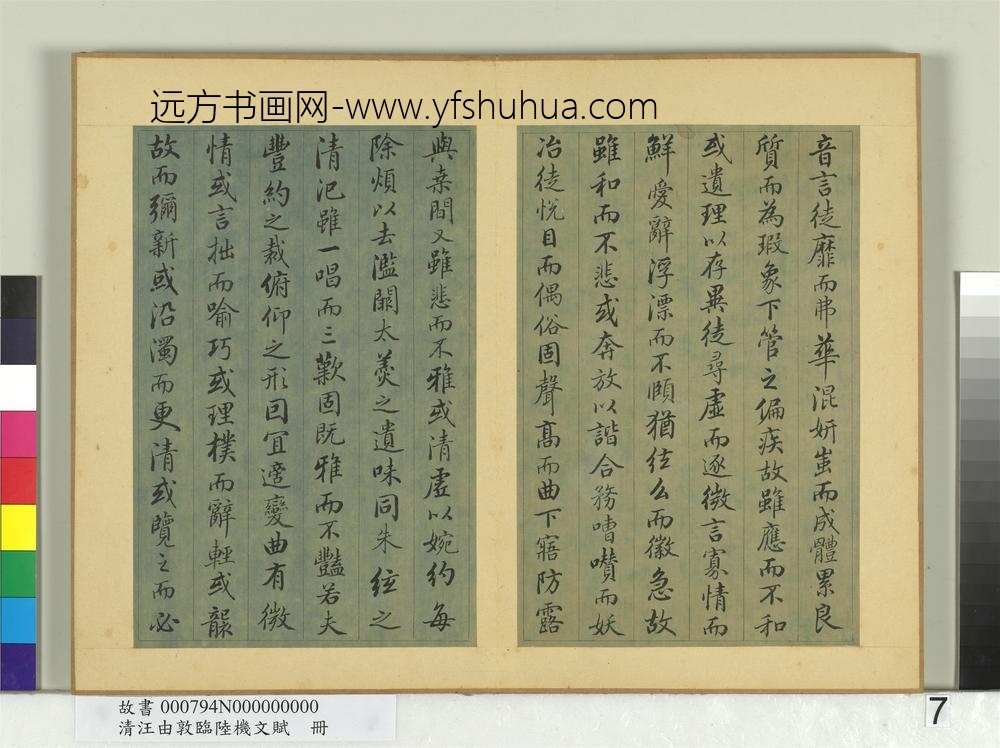 远方书画网-www.yfshuhua.com
音言徒靡而弗華混妍蚩而成體累良
質而為瑕象下管之偏疾故雖應而不和
或遺理以存異徒尋虛而逐微言寡情而
鮮愛辭浮漂而不歸猶絃么而徽急故
雖和而不悲或奔放以諧合務嘈囋而妖
冶徒悅目而偶俗固聲高而曲下寤防露
與桒間又雖悲而不雅或清虛以婉約每
除煩以去濫闕太羹之遺味同朱絃之
清汜雖一唱而三歎固既雅而不豔若夫
豐約之裁俯仰之形因宜適變曲有微
情或言拙而喻巧或理樸而辭輕或襲
故而彌新或沿濁而更清或覽之而必
故書 000794N000000000
清汪由敦臨陸機文賦 冊
7